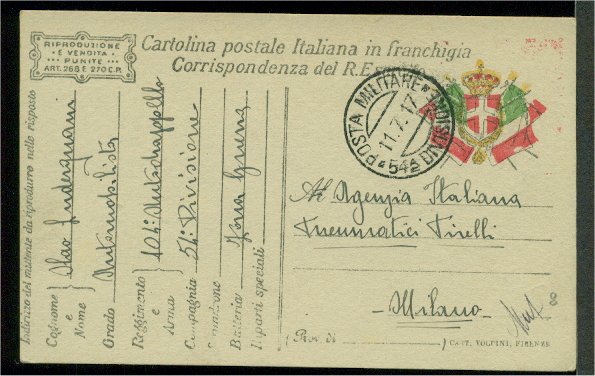 RIPRODUZIONE
E VENDITA
PUNITE
ART. 268 E 270 C.P.
Cartolina postale Italiana in franchigia
Corrispondenza del R.E
POSTA MILITARE
11.7.17
54ª DIVISIONE
Indirizzo del mittente da riprodurre nelle risposte
Cognome e Nome Aldo
Grado Automobilista
Reggimento e Arma 104°
Compagnia 54ª Divisione
Squadrone Zona Guerra
Batteria
Riparti speciali
All Agenzia Italiana
Pneumatici Pirelli
- Milano -
(Prov. di ) CAV. VOLPINI, FIRENZE